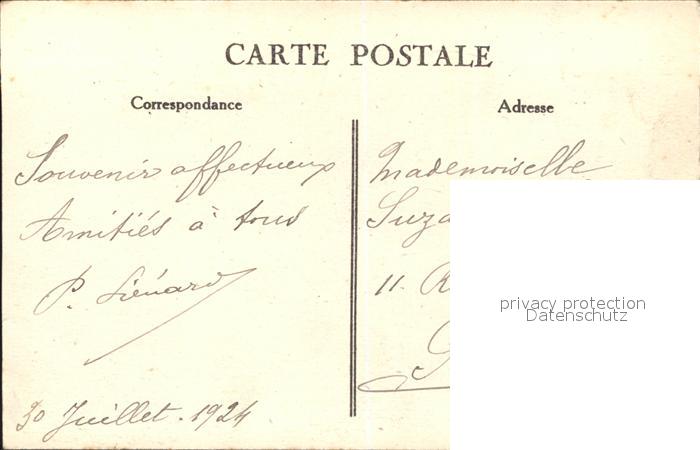 CARTE POSTALE
Correspondance
Adresse
Souvenir affectueux
Amitiés à tous
P. Liénard
30 Juillet. 1924
Mademoiselle
Suza
11. R
privacy protection
Datenschutz